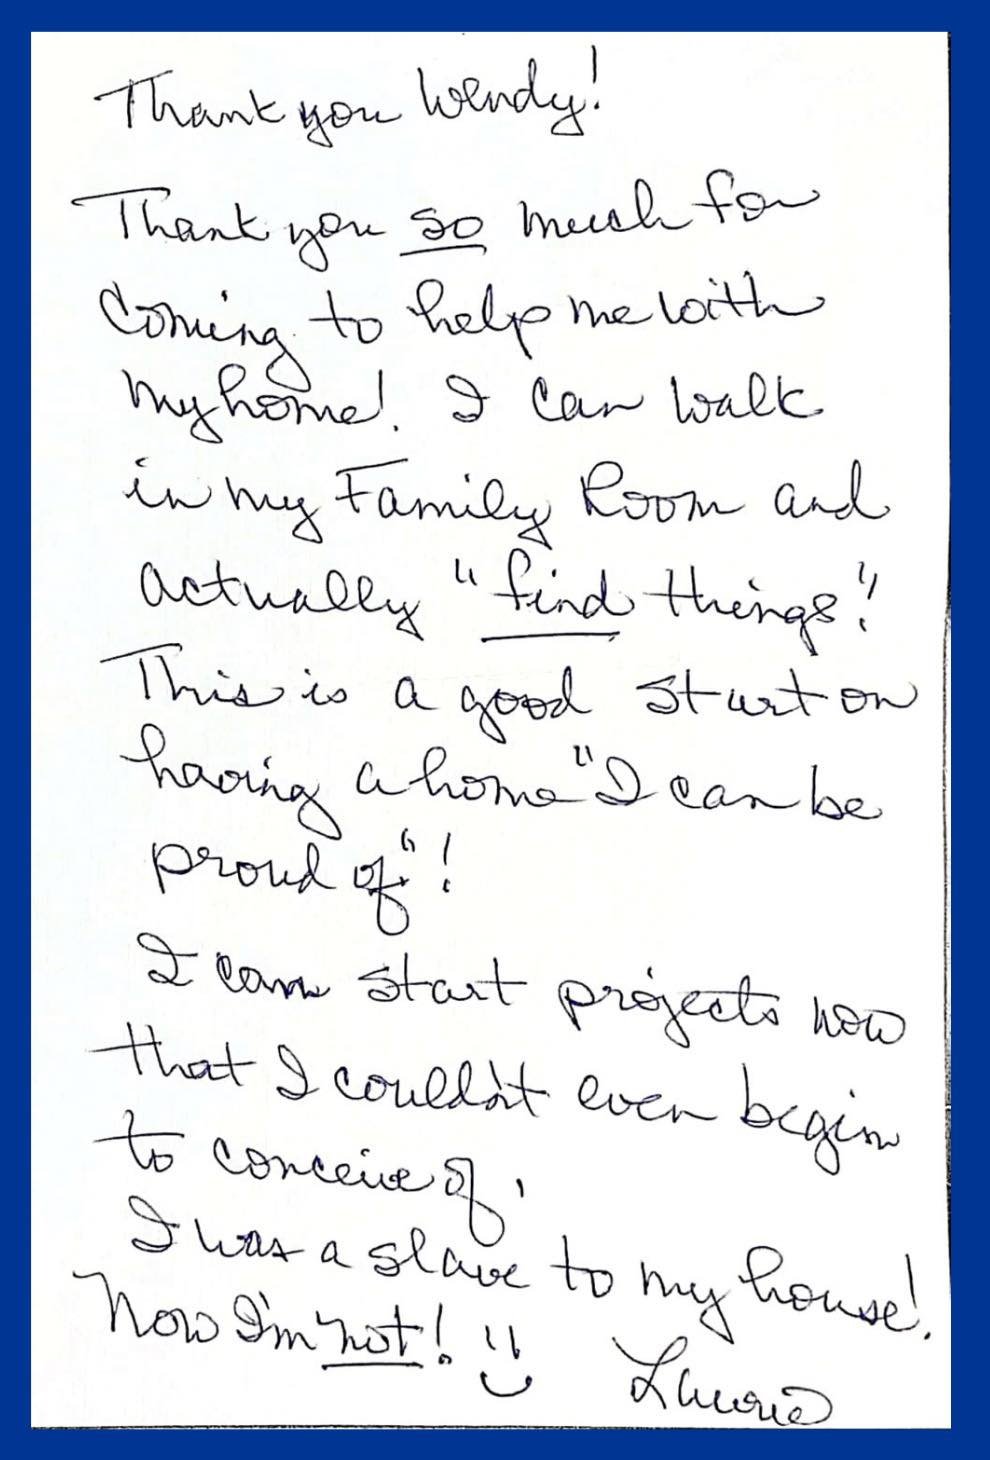 Thank you Wendy!
Thank you so much for
coming to help me with
my home! I can walk
in my Family Room and
actually "find things"!
This is a good start on
having a home "I can be
proud of"!
I can start projects now
that I couldn't even begin
to conceive of.
I was a slave to my house!
Now I'm not! :)
Laurie